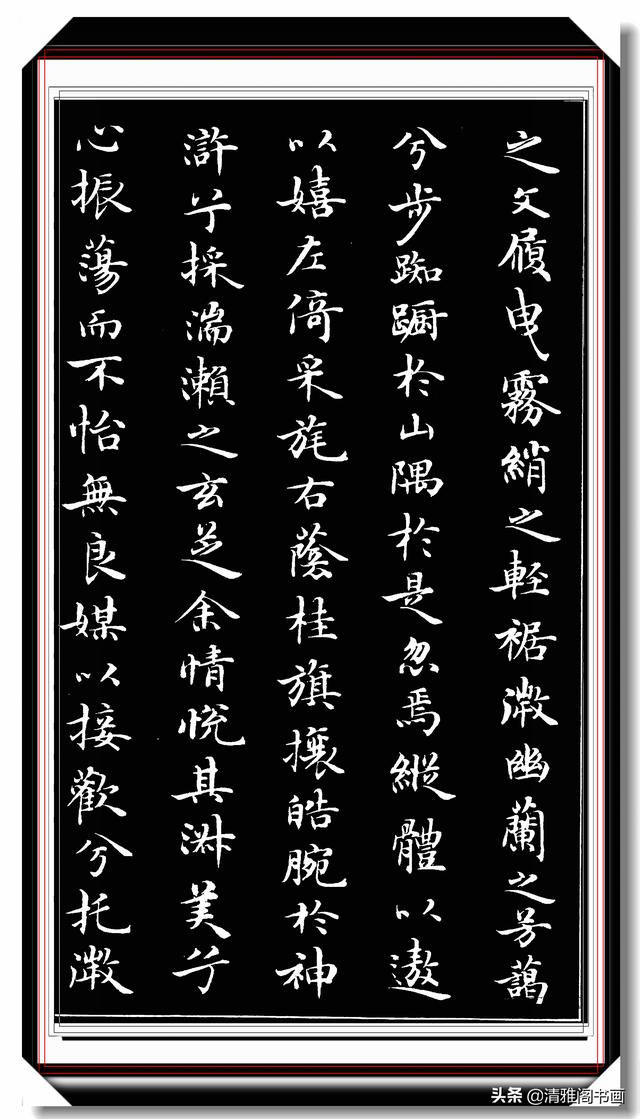 之文履曳霧綃之輕裾微幽蘭之芳藹
兮步踟躕於山隅於是忽焉縱體以遨
以嬉左倚采旄右蔭桂旗攘皓腕於神
滸兮採湍瀨之玄芝余情悅其淋美兮
心振蕩而不怡無良媒以接歡兮托微
头条 @清雅阁书画